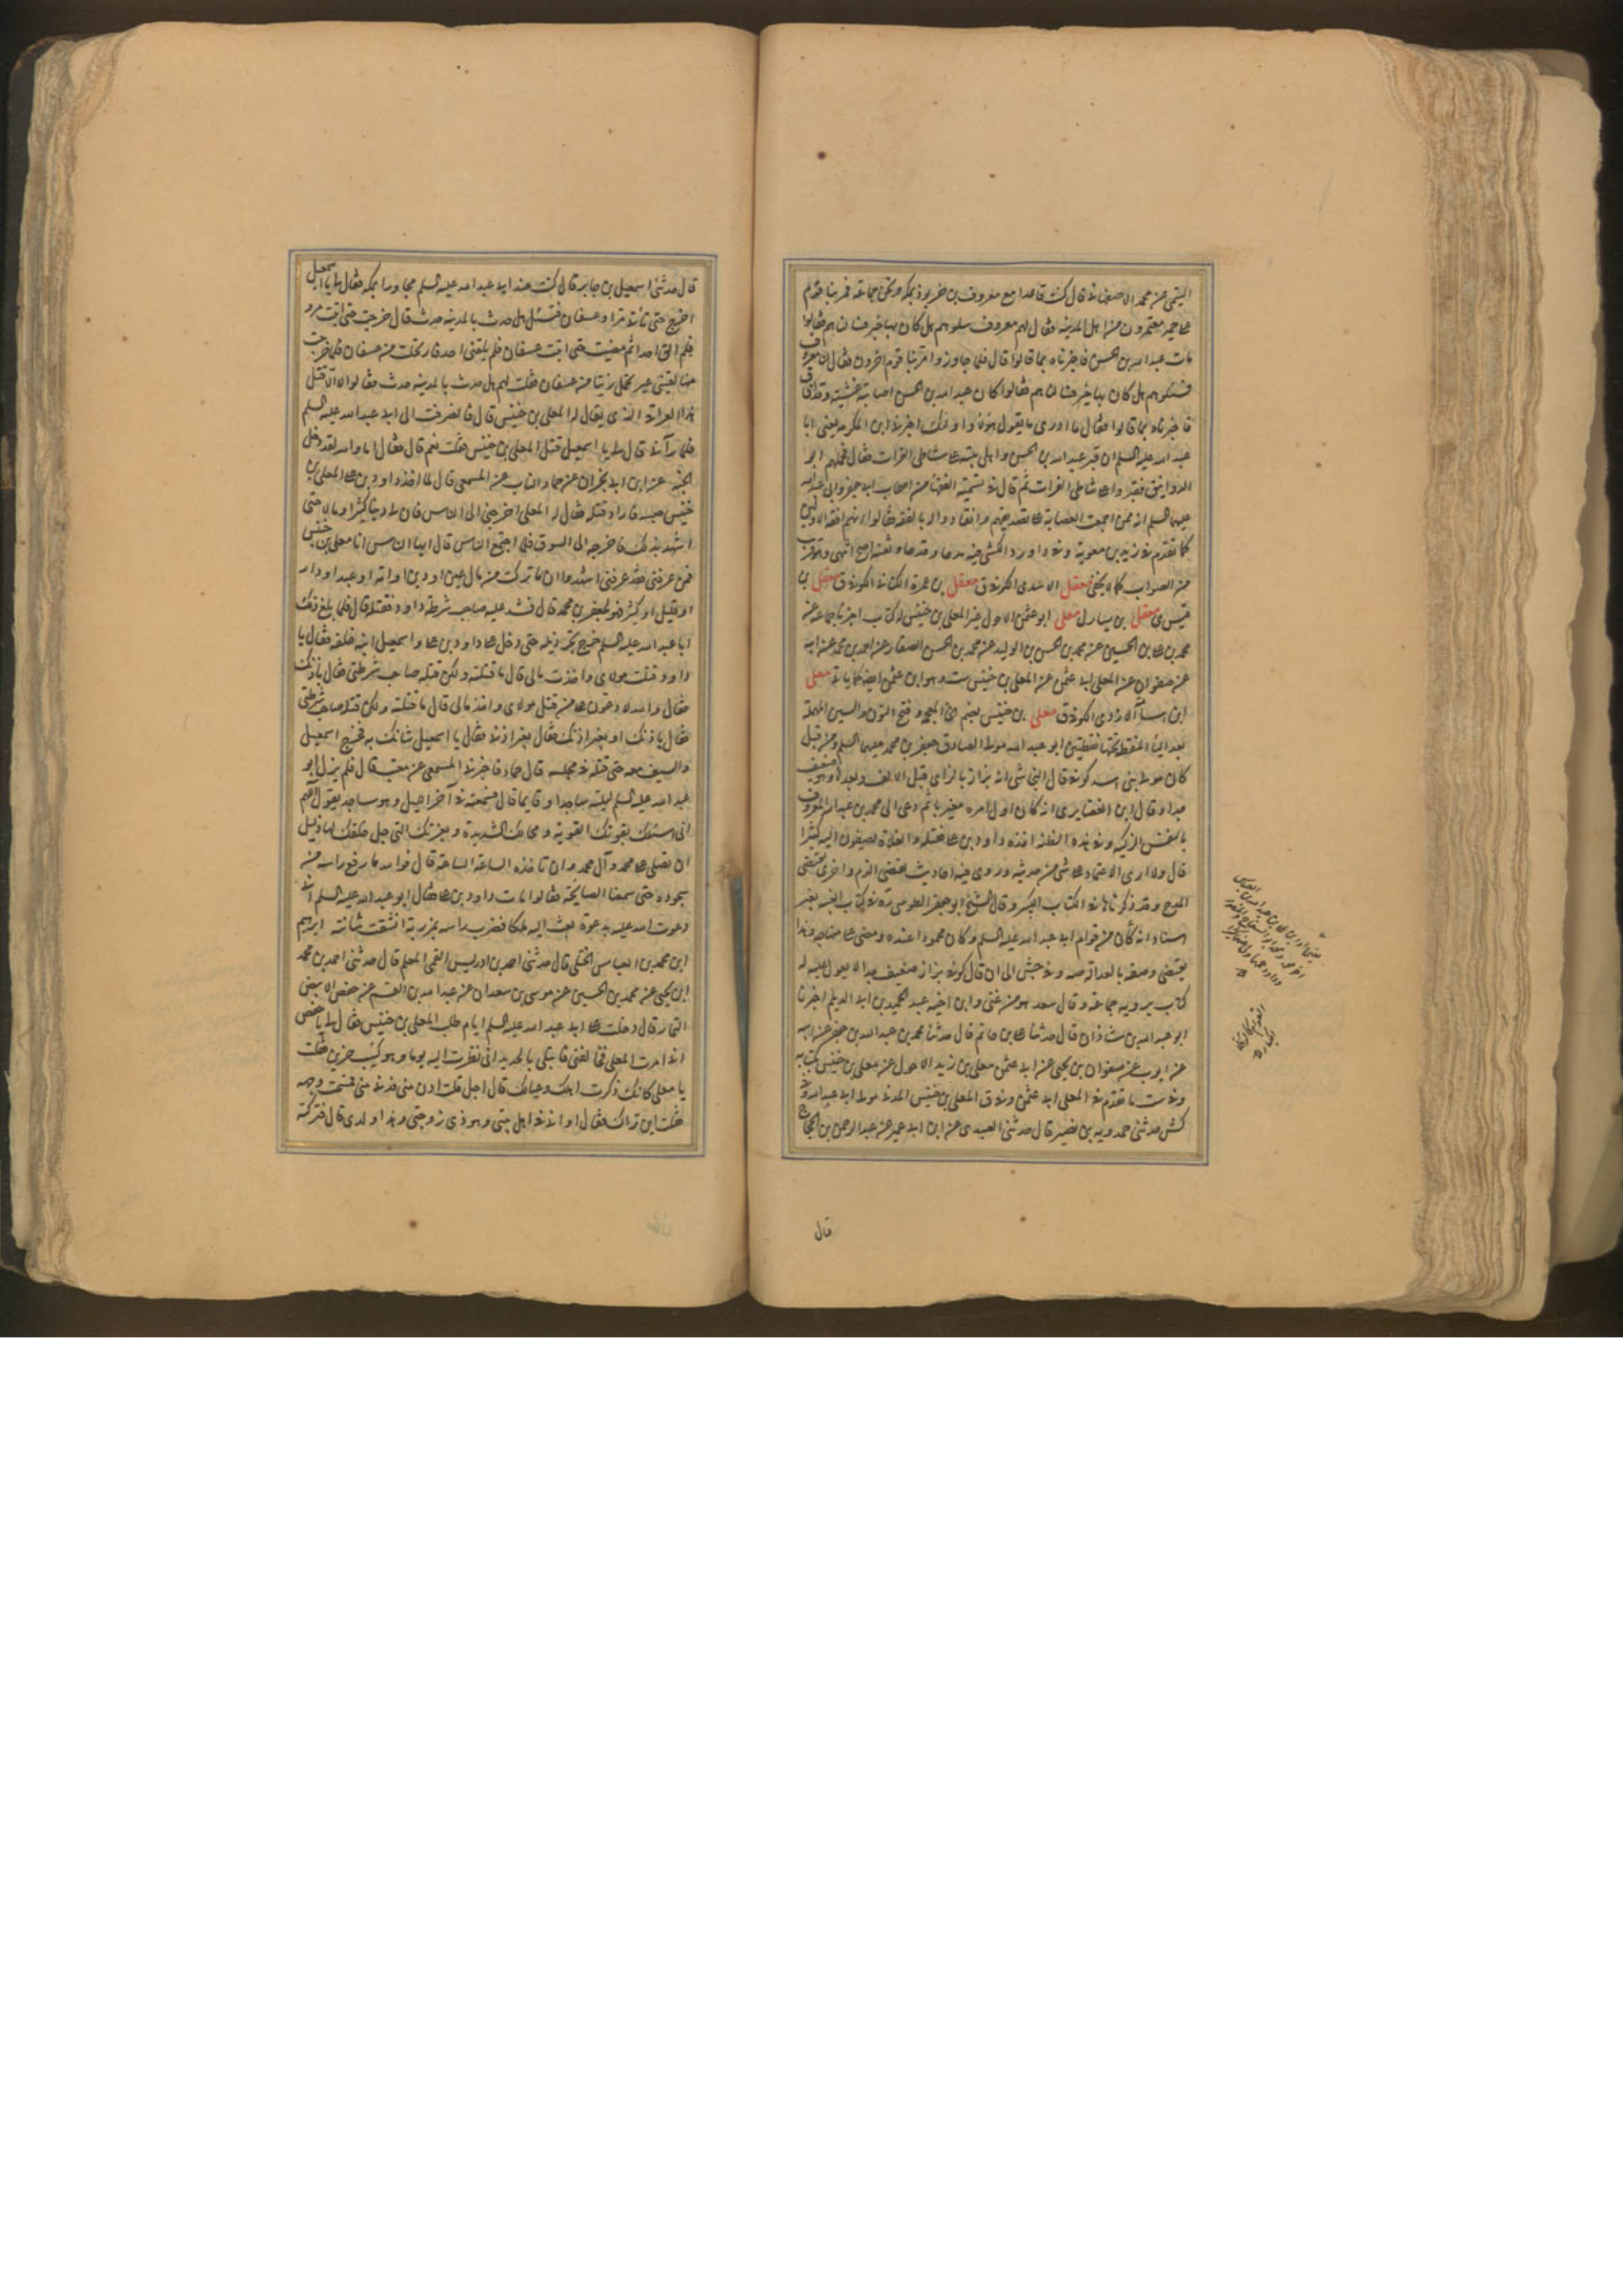 عن محمد الاصفهانى قال كنت قاعدا مع معروف بن خربوذ بمكة ونحن جماعة فمر بنا قوم
على حمير معتمرون من اهل المدينة فقال لهم معروف سلوهم هل كان بها خبر فسالناهم فقالوا
مات عبد الله بن الحسن فاخبرناه بما قالوا قال فلما جاوزوا مر بنا قوم اخرون فقال لهم معروف
فسئلوهم هل كان بها خبر فسالناهم فقالوا كان عبد الله بن الحسن اصابته غشية وقد افاق
فاخبرناه بما قالوا فقال ما ادرى ما يقول هؤلاء واولئك اخبرنى ابن المكرمة يعنى ابا
عبد الله عليه السلم ان قبر عبد الله بن الحسن واهل بيته على شاطى الفرات فقال فحملهم ابو
الدوانيق فقبروا على شاطى الفرات ثم قال فى تسمية الفقهاء من اصحاب ابى جعفر وابى عبد الله
عليهما السلم انه ممن اجمعت العصابة على تصديقهم وانقادوا له بالفقه فقالوا انهم افقه الاولين
كما تقدم فى بريد بن معوية وفى داورد الكشى فيه مدحا وقدحا وثقته اصح انتهى
من الصواب كما لا يخفى معقل الاسدى الكوفى ق معقل بن عمرة الكنانى الكوفى ق معقل بن
قيس ى معقل بن يسار ل معلى ابو عثمن الاحول عن المعلى بن خنيس له كتاب اخبرنا جماعة عن
محمد بن على بن الحسين عن محمد بن الحسن بن الوليد عن محمد بن الحسن الصفار عن احمد بن محمد عن ابيه
عن صفوان عن المعلى ابى عثمن عن المعلى بن خنيس ست وهو ابن عثمن الاتى كما ياتى معلى
ابن اسد الازدى الكوفى ق معلى بن خنيس بضم الخاء المعجمة وفتح النون والسين المهملة
بعد الياء المنقطة تحتها نقطتين ابو عبد الله مولى الصادق جعفر بن محمد عليهما السلم ومن قبله
كان مولى بنى اسد كوفى قال النجاشى انه بزاز بالزاى قبل الالف وبعدها وهو ضعيف
جدا وقال ابن الغضايرى انه كان اول امره مغيريا ثم دعى الى محمد بن عبد الله المعروف
بالنفس الزكية وفى هذه الظنة اخذه داود بن على فقتله والغلاة يضيفون اليه كثيرا
قال ولا ارى الاعتماد على شىء من حديثه وروى فيه احاديث يقتضى الذم واخرى يقتضى
المدح وقد ذكرناها فى الكتاب الكبير وقال الشيخ ابو جعفر الطوسى ره فى كتاب الغيبة بغير
اسناد انه كان من قوام ابى عبد الله عليه السلم وكان محمودا عنده ومضى على منهاجه وهذا
يقتضى وصفه بالعدالة صه وفى جش الى ان قال كوفى بزاز ضعيف جدا لا يعول عليه له
كتاب يرويه جماعة وقال سعد هو من غنى وابن اخيه عبد الحميد بن ابى الديلم اخبرنا
ابو عبد الله بن شاذان قال حدثنا على بن حاتم قال حدثنا محمد بن عبد الله بن جعفر عن ابيه
عن ايوب عن صفوان بن يحيى عن ابى عثمن معلى بن زيد الاحول عن معلى بن خنيس بكتابه
وفى ست ما تقدم فى المعلى ابى عثمن وفى ق المعلى بن خنيس المدنى مولى ابى عبد الله وفى
كش حدثنى حمدويه بن نصير قال حدثنى العبيدى عن ابن ابى عمير عن عبد الرحمن بن الحجاج
قال
قال حدثنى اسمعيل بن جابر قال كنت عند ابى عبد الله عليه السلم مجاورا بمكة فقال لى يا اسمعيل
اخرج حتى تاتى مرا وعسفان فتسئل هل حدث بالمدينة حدث قال خرجت حتى اتيت مرو
فلم الق احدا ثم مضيت حتى اتيت عسفان فلم يلقنى احد فارتحلت من عسفان فلما خرجت
منها لقينى عير تحمل زيتا من عسفان فقلت لهم هل حدث بالمدينة حدث فقالوا لا الا قتل
هذا العراقى الذى يقال له المعلى بن خنيس قال فانصرفت الى ابى عبد الله عليه السلم
فلما رآنى قال لى يا اسمعيل قتل المعلى بن خنيس فقلت نعم قال فقال اما والله لقد دخل
الجنة عن ابن ابى نجران عن حماد الناب عن المسمعى قال لما اخذ داود بن على المعلى بن
خنيس حبسه فاراد قتله فقال له المعلى اخرجنى الى الناس فان لى دينا كثيرا ومالا حتى
اشهد بذلك فاخرجه الى السوق فلما اجتمع الناس قال ايها الناس انا معلى بن خنيس
فمن عرفنى فقد عرفنى اشهدوا ان ما تركت من مال عين او دين او امة او عبد او دار
او قليل او كثير فهو لجعفر بن محمد قال فشد عليه صاحب شرطة داود فقتله قال فلما بلغ ذلك
ابا عبد الله عليه السلم خرج يجر ذيله حتى دخل على داود بن على واسمعيل ابنه خلفه فقال يا
داود قتلت مولاى واخذت مالى قال ما قتلته ولكن قتله صاحب شرطتى فقال باذنك
فقال والله لادعون على من قتل مولاى واخذ مالى قال ما قتلته ولكن قتله صاحب شرطتى
فقال باذنك او بغير اذنك فقال بغير اذنى فقال يا اسمعيل شانك به فخرج اسمعيل
والسيف معه حتى قتله فى مجلسه قال حماد فاخبرنى المسمعى عن معتب قال فلم يزل ابو
عبد الله عليه السلم ليلته ساجدا وقايما قال فسمعته فى آخر الليل وهو ساجد يقول اللهم
انى اسئلك بقوتك القوية ومحالك الشديدة وبعزتك التى جل خلقك لها ذليل
ان تصلى على محمد وآل محمد وان تاخذه الساعة الساعة قال فوالله ما رفع راسه من
سجوده حتى سمعنا الصايحة فقالوا مات داود بن على فقال ابو عبد الله عليه السلم انى
دعوت الله عليه بدعوة بعث اليه ملكا فضرب راسه بمرزبة انشقت مثانته ابراهيم
ابن محمد بن العباس الختلى قال حدثنى احمد بن ادريس القمى المعلم قال حدثنى احمد بن محمد
ابن يحيى عن محمد بن الحسين عن موسى بن سعدان عن عبد الله بن القسم عن حفص الابيض
التمار قال دخلت على ابى عبد الله عليه السلم ايام طلب المعلى بن خنيس فقال لى يا حفص
انى امرت المعلى فخالفنى فابتلى بالحديد انى نظرت اليه يوما وهو كئيب حزين فقلت
يا معلى كانك ذكرت اهلك وعيالك قال اجل قلت ادن منى فدنى منى فمسحت وجهه
فقلت اين تراك فقال ارانى فى اهل بيتى وهو ذى زوجتى وهذا ولدى قال فتركته